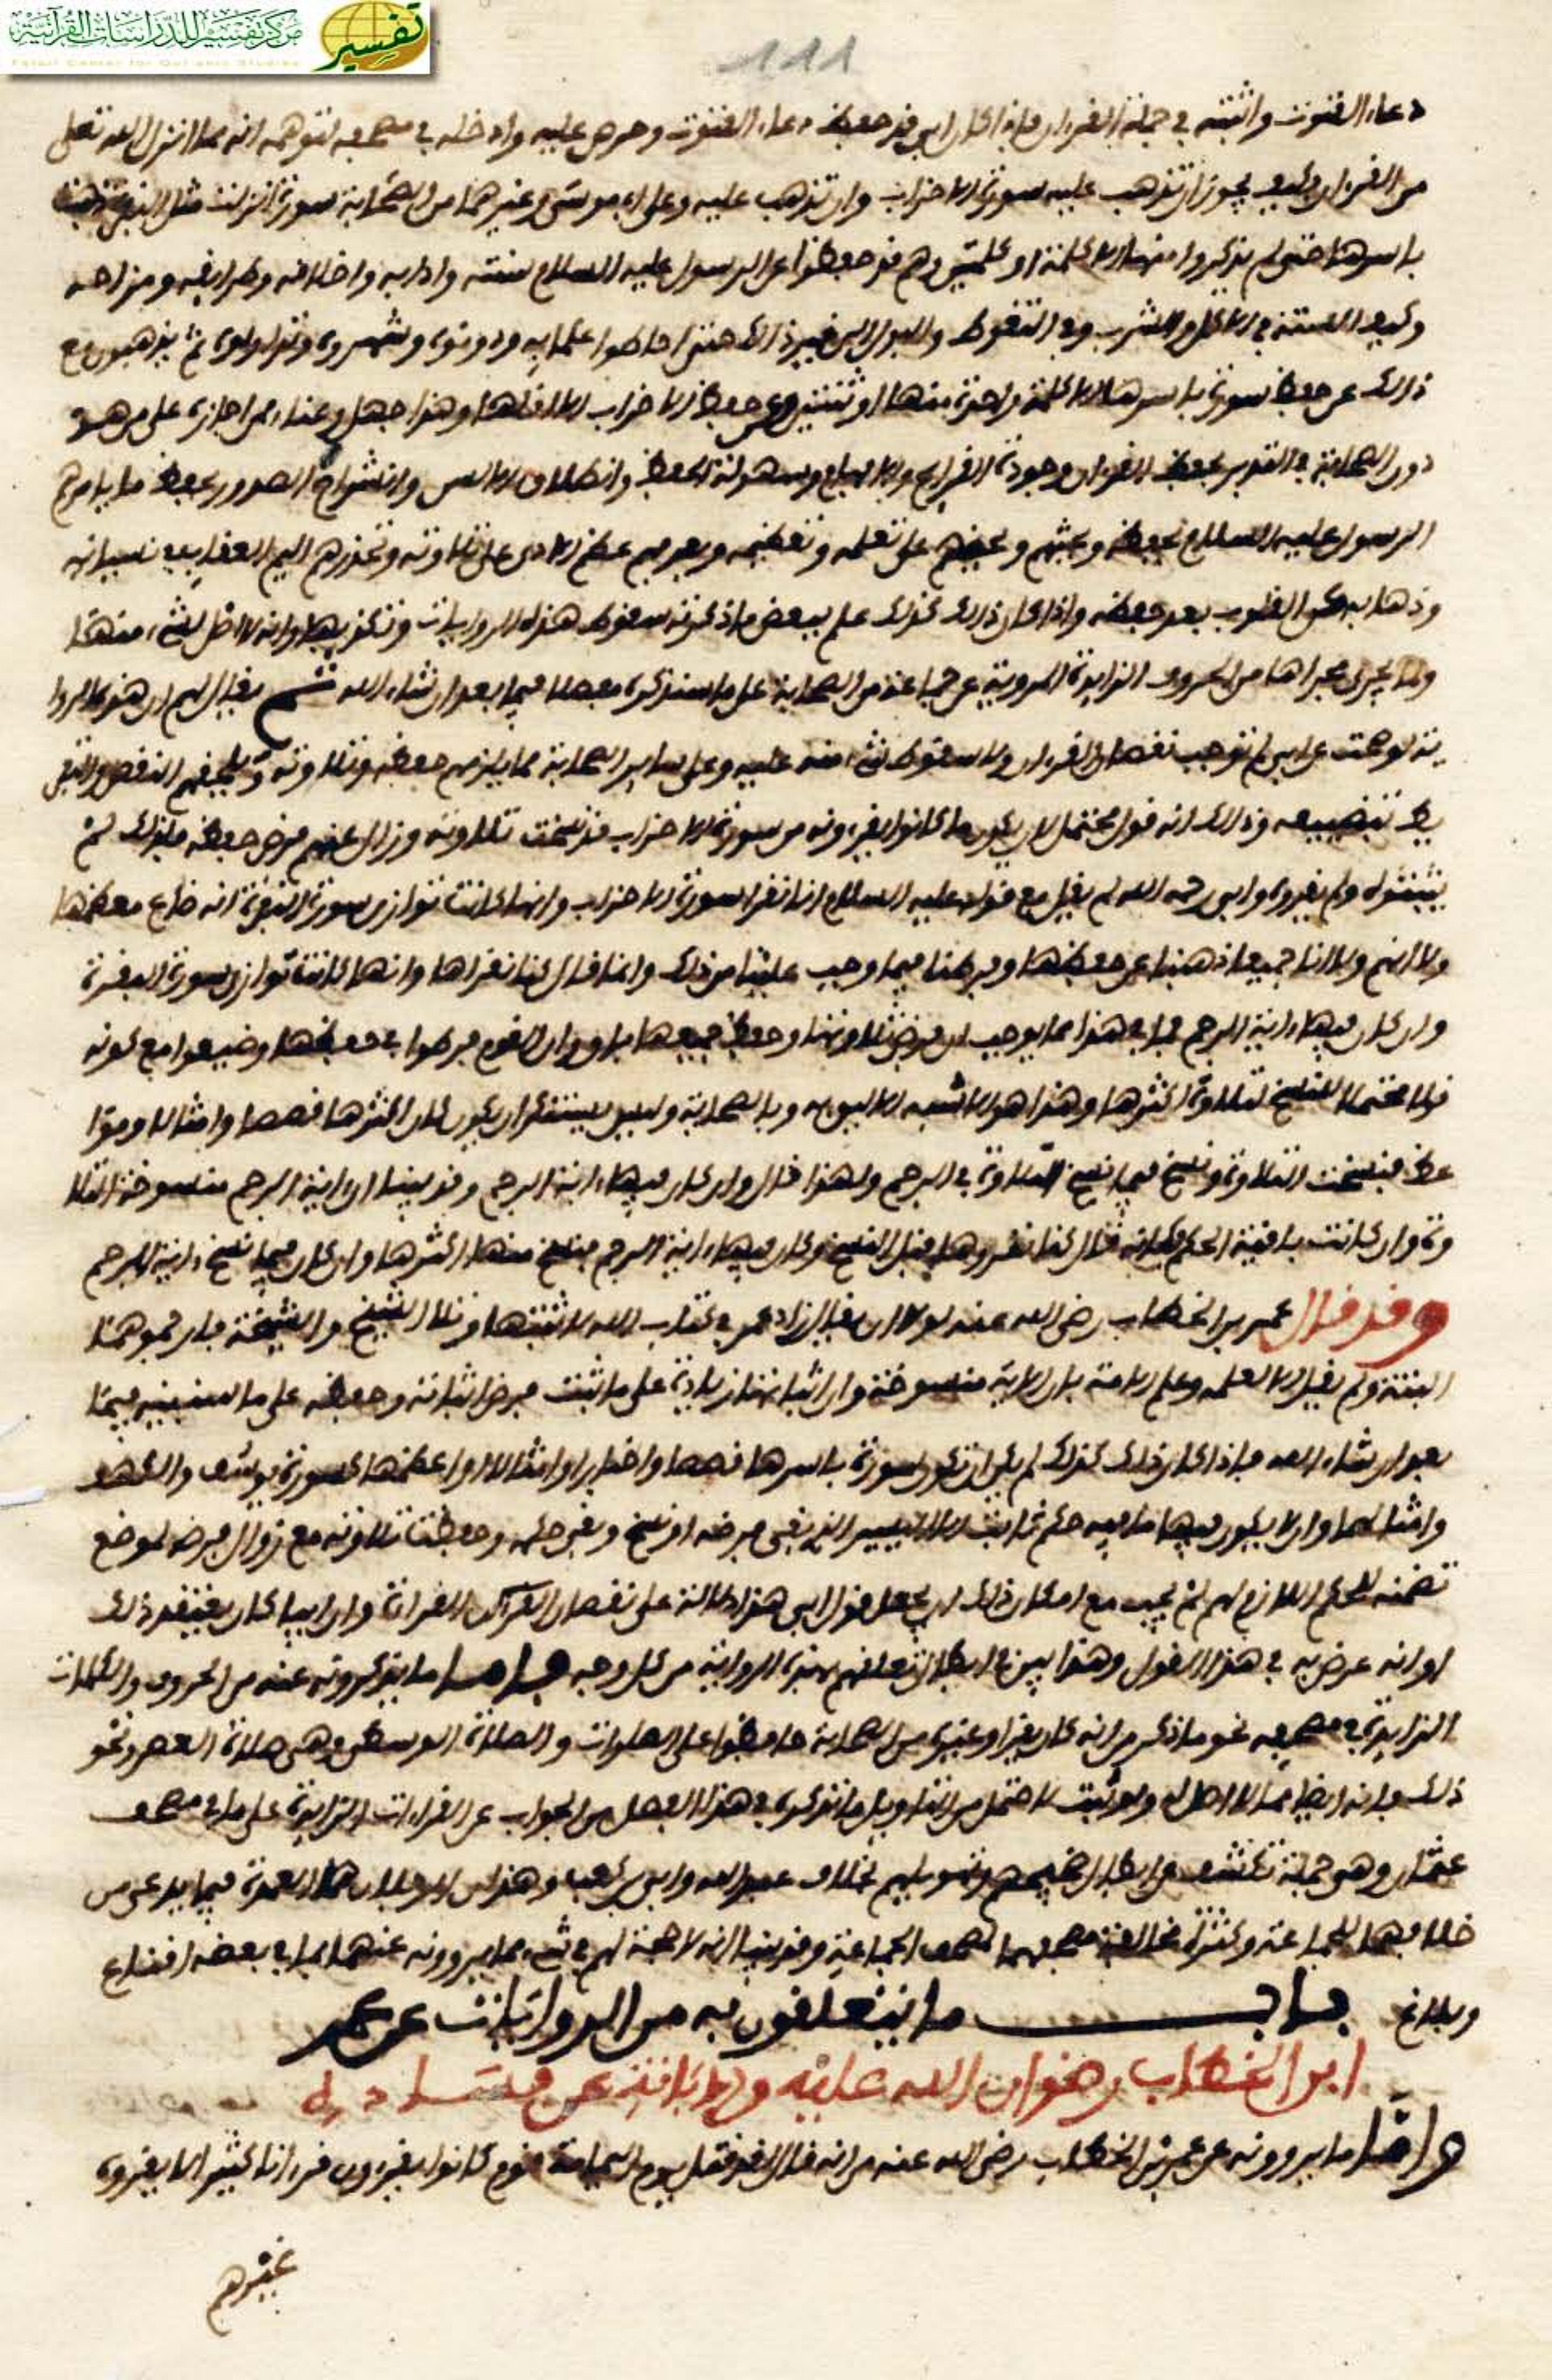 مركز تفسير للدراسات القرآنية
تفسير
Tafsir Center for Qur'anic Studies
111
دعاء القنوت واثبته في جملة القرءان فإذا كان ابي قد حفظ دعاء القنوت وحرص عليه وأدخله في مصحفه لتوهمه انه مما انزل الله تعلى
من القرءان فكيف يجوز ان تذهب عليه سورة الاحزاب وان تذهب عليه وعلى ابي موسى وغيرهما من الصحابة سورة انزلت مثل البقرة
باسرها حتى لم يذكروا منها الا كلمة او كلمتين وهم قد حفظوا عن الرسول عليه السلام سننه وادابه واخلافه وطرايفه ومزاحه
وكيف السنة في الاكل والشرب وفي التغوط والبول الى غير ذلك حتى احاطوا علما به ودونوه وشهروه وتداولوه ثم يذهبون مع
ذلك عن حفظ سورة باسرها الا كلمة واحدة منها او ثنتين وعن حفظ الاحزاب الا اقلها وهذا جهل وعناد ممن اجازه على من هو
دون الصحابة في التدين بحفظ القرءان وجودة القرايح والافهام وسهولة الحفظ وانطلاق الالسن وانشراح الصدور بحفظ ما يامرهم
الرسول عليه السلام بحفظه ويحثهم ويحضهم على تعلمه وتعظيمه ويعرفهم عظم الاجر على تلاوته وتحذيرهم اليم العقاب في نسيانه
وذهابه عن القلوب بعد حفظه واذا كان ذلك كذلك علم ببعض ما ذكرته سقوط هذه الروايات وتكذيبها وانه لا اصل لشيء منها
ولما يجري مجراها من الحروف الزايدة المروية عن جماعة من الصحابة على ما سنذكره مفصلا فيما بعد ان شاء الله ثم يقال لهم ان هذه الروا
ية لو صحت عن ابي لم توجب نقصان القرءان ولا سقوط شيء منه عليه وعلى ساير الصحابة مما يلزمهم حفظه وتلاوته ويلحقهم النقص والتفر
يط بتضييعه وذلك انه قول محتمل لان يكون ما كانوا يقرءونه من سورة الاحزاب قد نسخت تلاوته وزال عنهم فرض حفظه فلذلك لم
يثبتوه ولم يقرءوه وابي رحمه الله لم يقل مع قوله عليه السلام انا نقرا سورة الاحزاب وانها كانت توازي سورة البقرة انه ضاع معظمها
ولا انهم ولا اننا جميعا ذهبنا عن حفظها وفرطنا فيما وجب علينا من ذلك وانما قال كنا نقراها وانها كانت توازي سورة البقرة
وان كان فيها ءاية الرجم فما في هذا مما يوجب ان فرض تلاوتها وحفظ جميعها باق وان القوم فرطوا في حفظها وضيعوا مع كونه
قولا محتملا لنسخ تلاوة اكثرها وهذا هو الاشبه الاليق به وبالصحابة وليس يستنكر ان يكون كان اكثرها قصصا وامثالا ومواا
عظ فنسخت التلاوة ونسخ فيما نسخ التلاوة في الرجم ولهذا قال وان كان فيها ءاية الرجم وقد بينا ان ءاية الرجم منسوخة التلا
وة وان كانت باقية الحكم فكانه قال كنا نقروها قبل النسخ وكان فيها ءاية الرجم فنسخ منها اكثرها وان كان فيما نسخ ءاية الرجم
وقد قال عمر بن الخطاب رضي الله عنه لولا ان يقال زاد عمر في كتاب الله لاثبتها وتلا الشيخ والشيخة فارجموهما
البتة ولم يقل الا لعلمه وعلم الامة بان الاية منسوخة وان اثباتها زيادة على ما ثبت فرض اثباته وحفظه على ما سنبينه فيما
بعد ان شاء الله فاذا كان ذلك كذلك لم يكن ان تكون سورة باسرها قصصا واخبارا وامثالا او اعظمها كسورة يوسف والكهف
وامثالهما وان لا يكون فيها ما فيه حكم ثابت الا اليسير الذي بقي فرضه او نسخ وبقي حكمه وحفظت تلاوته مع زوال فرضه لموضع
تضمنه للحكم اللازم لهم لم يجب مع امكان ذلك ان يجعل قول ابي هذا دلالة على نقصان القرءان وان ابيا كان يعتقد ذلك
او انه عرض به في هذا القول وهذا بين في ابطال تعلقهم بهذه الرواية من كل وجه فاما ما يذكرونه عنه من الحروف والكلمات
الزايدة في مصحفه نحو ما ذكر من انه كان يقرا وغيره من الصحابة حافظوا على الصلوات والصلاة الوسطى وهي صلاة العصر ونحو
ذلك فانه ايضا مما لا اصل له ولو ثبت لاحتمل من التاويل ما نذكره في هذا الفصل من الجواب عن القراءات الزايدة على ما في مصحف
عثمان وهو جملة تكشف عن ابطال وتهويلهم بخلاف عبد الله وابي بن كعب وهذان الرجلان هما العمدة فيما يدعى من
خلافهما للجماعة وكثرة مخالفة مصحفهما لمصحف الجماعة وقد بينا انه لا حجة لهم في شيء مما يروونه عنهما بما في بعضه اقناع
وبلاغ باب ما يتعلقون به من الروايات عن عمر
ابن الخطاب رضوان الله عليه والابانة عن فساد ذلك
واما ما يروونه عن عمر بن الخطاب رضي الله عنه من انه قال لقد قتل يوم اليمامة قوم كانوا يقرءون قرءانا كثيرا لا يقرؤه
غيرهم